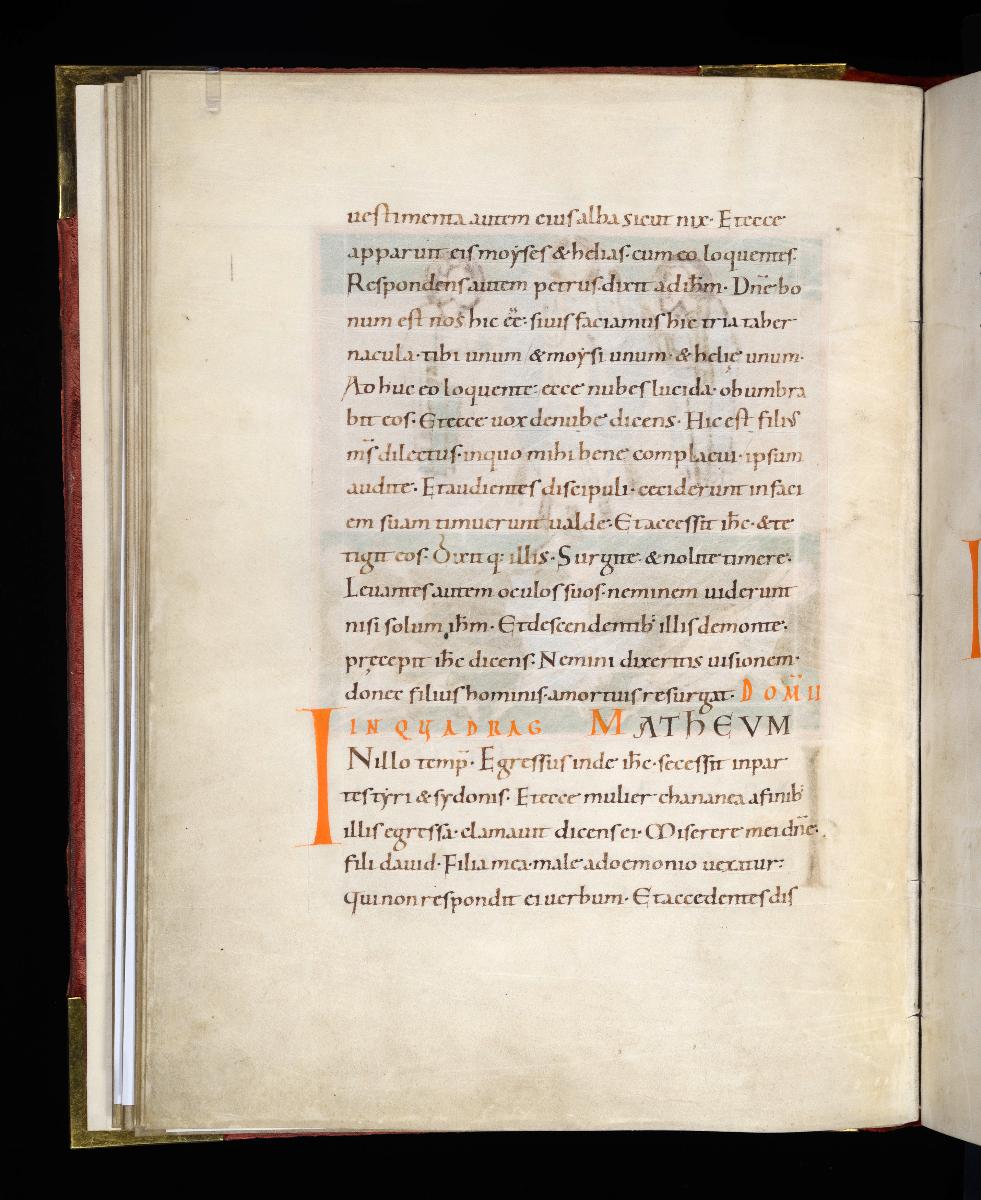 uestimenta autem eius alba sicut nix· Et ecce
apparuit eis moyses & helias· cum eo loquentes·
Respondens autem petrus· dixit ad ihm̄· Dn̄e bo
num est nos hic ēē· si uis faciamus hic tria taber
nacula· tibi unum & moysi unum· & helię unum·
Adhuc eo loquente· ecce nubes lucida· obumbra
bit eos· Et ecce uox de nube dicens· Hic est filius
ms̄ dilectus· in quo mihi bene complacui· ipsum
audite· Et audientes discipuli· ceciderunt in faci
em suam timuerunt ualde· Et accessit ihc̄· & te
tigit eos· Dixitq: illis· Surgite· & nolite timere·
Leuantes autem oculos suos· neminem uiderunt
nisi solum ihm̄· Et descendentib' illis de monte·
pręcepit ihc̄ dicens· Nemini dixeritis uisionem·
donec filius hominis· a mortuis resurgat· DOM̄ II
IN QUADRAG MATHEVM
INillo temp̄· Egressus inde ihc̄· secessit in par
tes tyri & sydonis· Et ecce mulier chananea a finib'
illis egressa· clamauit dicens ei· Miserere mei dn̄e·
fili dauid· Filia mea· male a doemonio uexatur:
Qui non respondit ei uerbum· Et accedentes dis